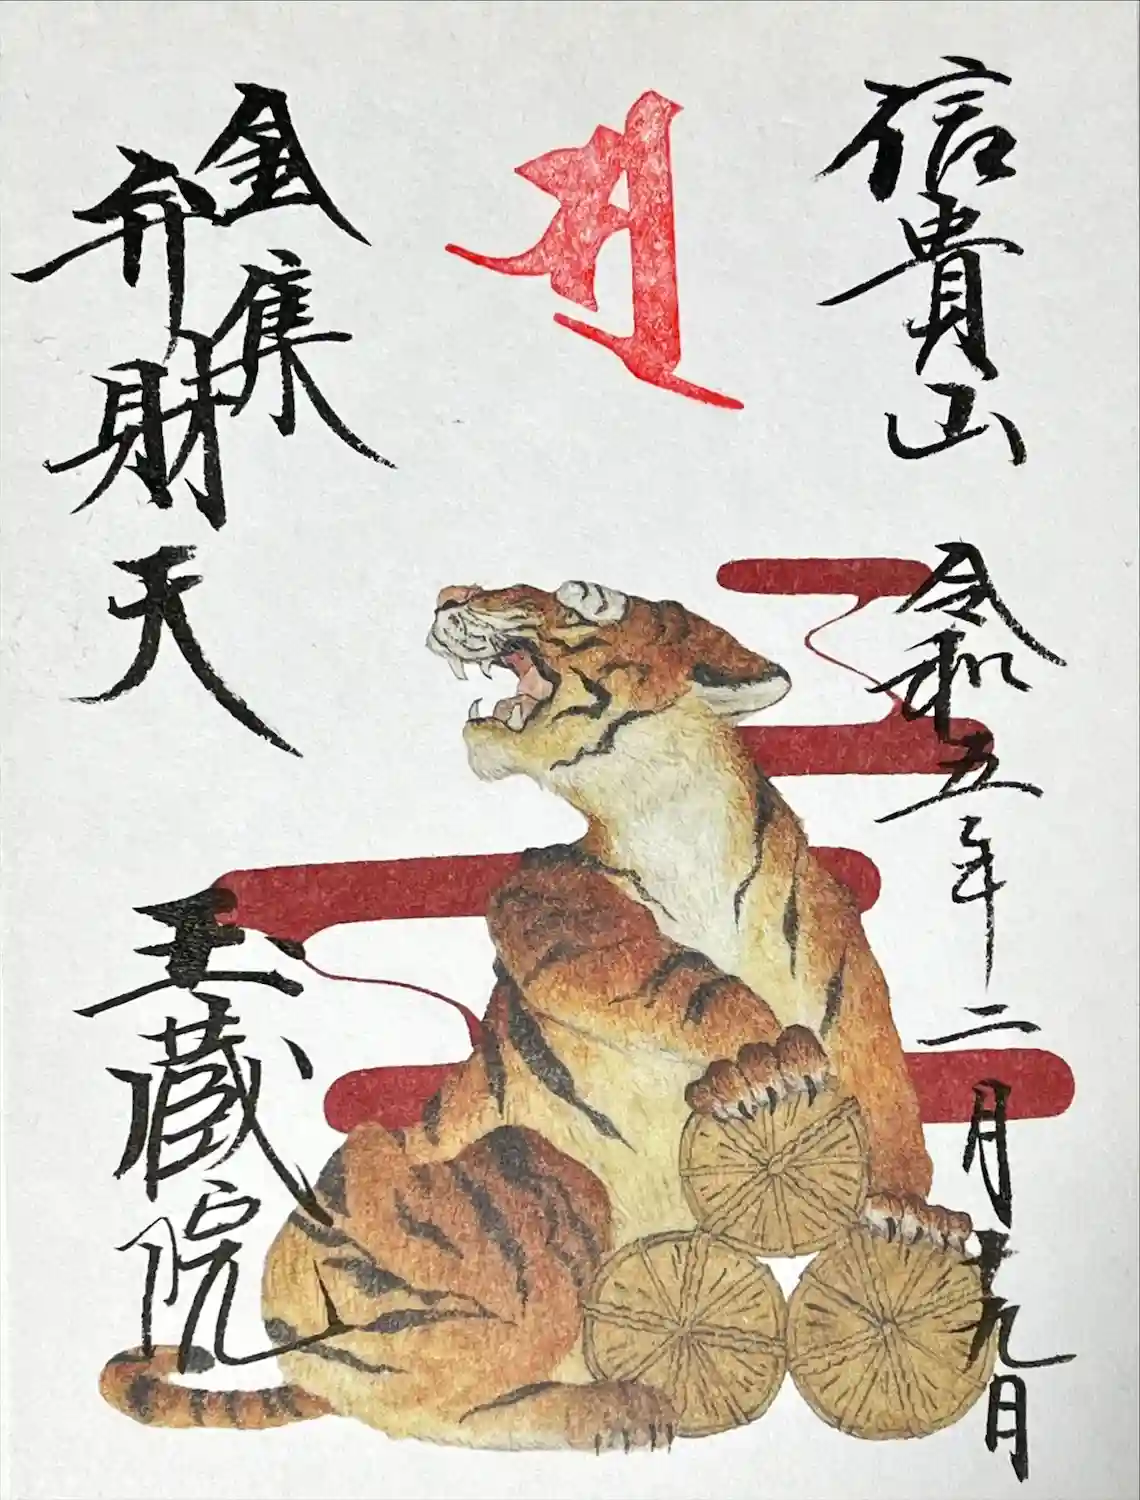 信貴山 令和五年二月十九日
金集
弁財天
玉蔵院